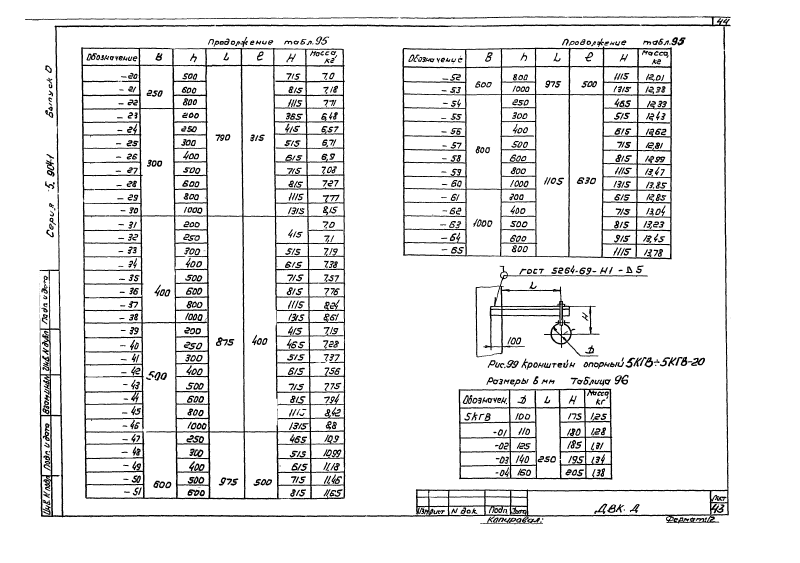 44
Продолжение табл. 95
Обозначение B h L ℓ H Масса, кг
-20 250 500 790 315 715 7,0
-21 600 815 7,18
-22 800 1115 7,71
-23 300 200 365 6,48
-24 250 415 6,57
-25 300 515 6,71
-26 400 615 6,9
-27 500 715 7,08
-28 600 815 7,27
-29 800 1115 7,77
-30 1000 1315 8,15
-31 400 200 875 400 415 7,0
-32 250 7,1
-33 300 515 7,19
-34 400 615 7,38
-35 500 715 7,57
-36 600 815 7,76
-37 800 1115 8,24
-38 1000 1315 8,61
-39 500 200 415 7,19
40 250 465 7,28
-41 300 515 7,37
-42 400 615 7,56
-43 500 715 7,75
-44 600 815 7,94
-45 800 1115 8,42
-46 1000 1315 8,8
-47 600 250 975 500 465 10,9
-48 300 515 10,99
-49 400 615 11,18
-50 500 715 11,46
-51 600 815 11,65
Продолжение табл. 95
Обозначение B h L ℓ H Масса, кг
-52 600 800 975 500 1115 12,01
-53 1000 1315 12,38
-54 800 250 1105 630 465 12,33
-55 300 515 12,43
-56 400 615 12,62
-57 500 715 12,81
-58 600 815 12,99
-59 800 1115 13,47
-60 1000 1315 13,85
-61 1000 300 615 12,85
-62 400 715 13,04
-63 500 815 13,23
-64 600 915 13,45
-65 800 1115 13,78
ГОСТ 5264-69-Н1-Δ5
L
H
100
D
Рис. 99 Кронштейн опорный 5КГВ÷5КГВ-20
Размеры в мм Таблица 96
Обозначен. D L H Масса кг
5КГВ 100 250 175 1,25
-01 110 180 1,28
-02 125 185 1,31
-03 140 195 1,34
-04 160 205 1,38
Изм Лист N док. Подп Дата
ДВК. Д
Лист
43
Копировал:
Формат 12
Серия 5.904-1 Выпуск 0
Инв. N подл Подп. и дата Взам. инв. N Инв. N дубл Подп и дата